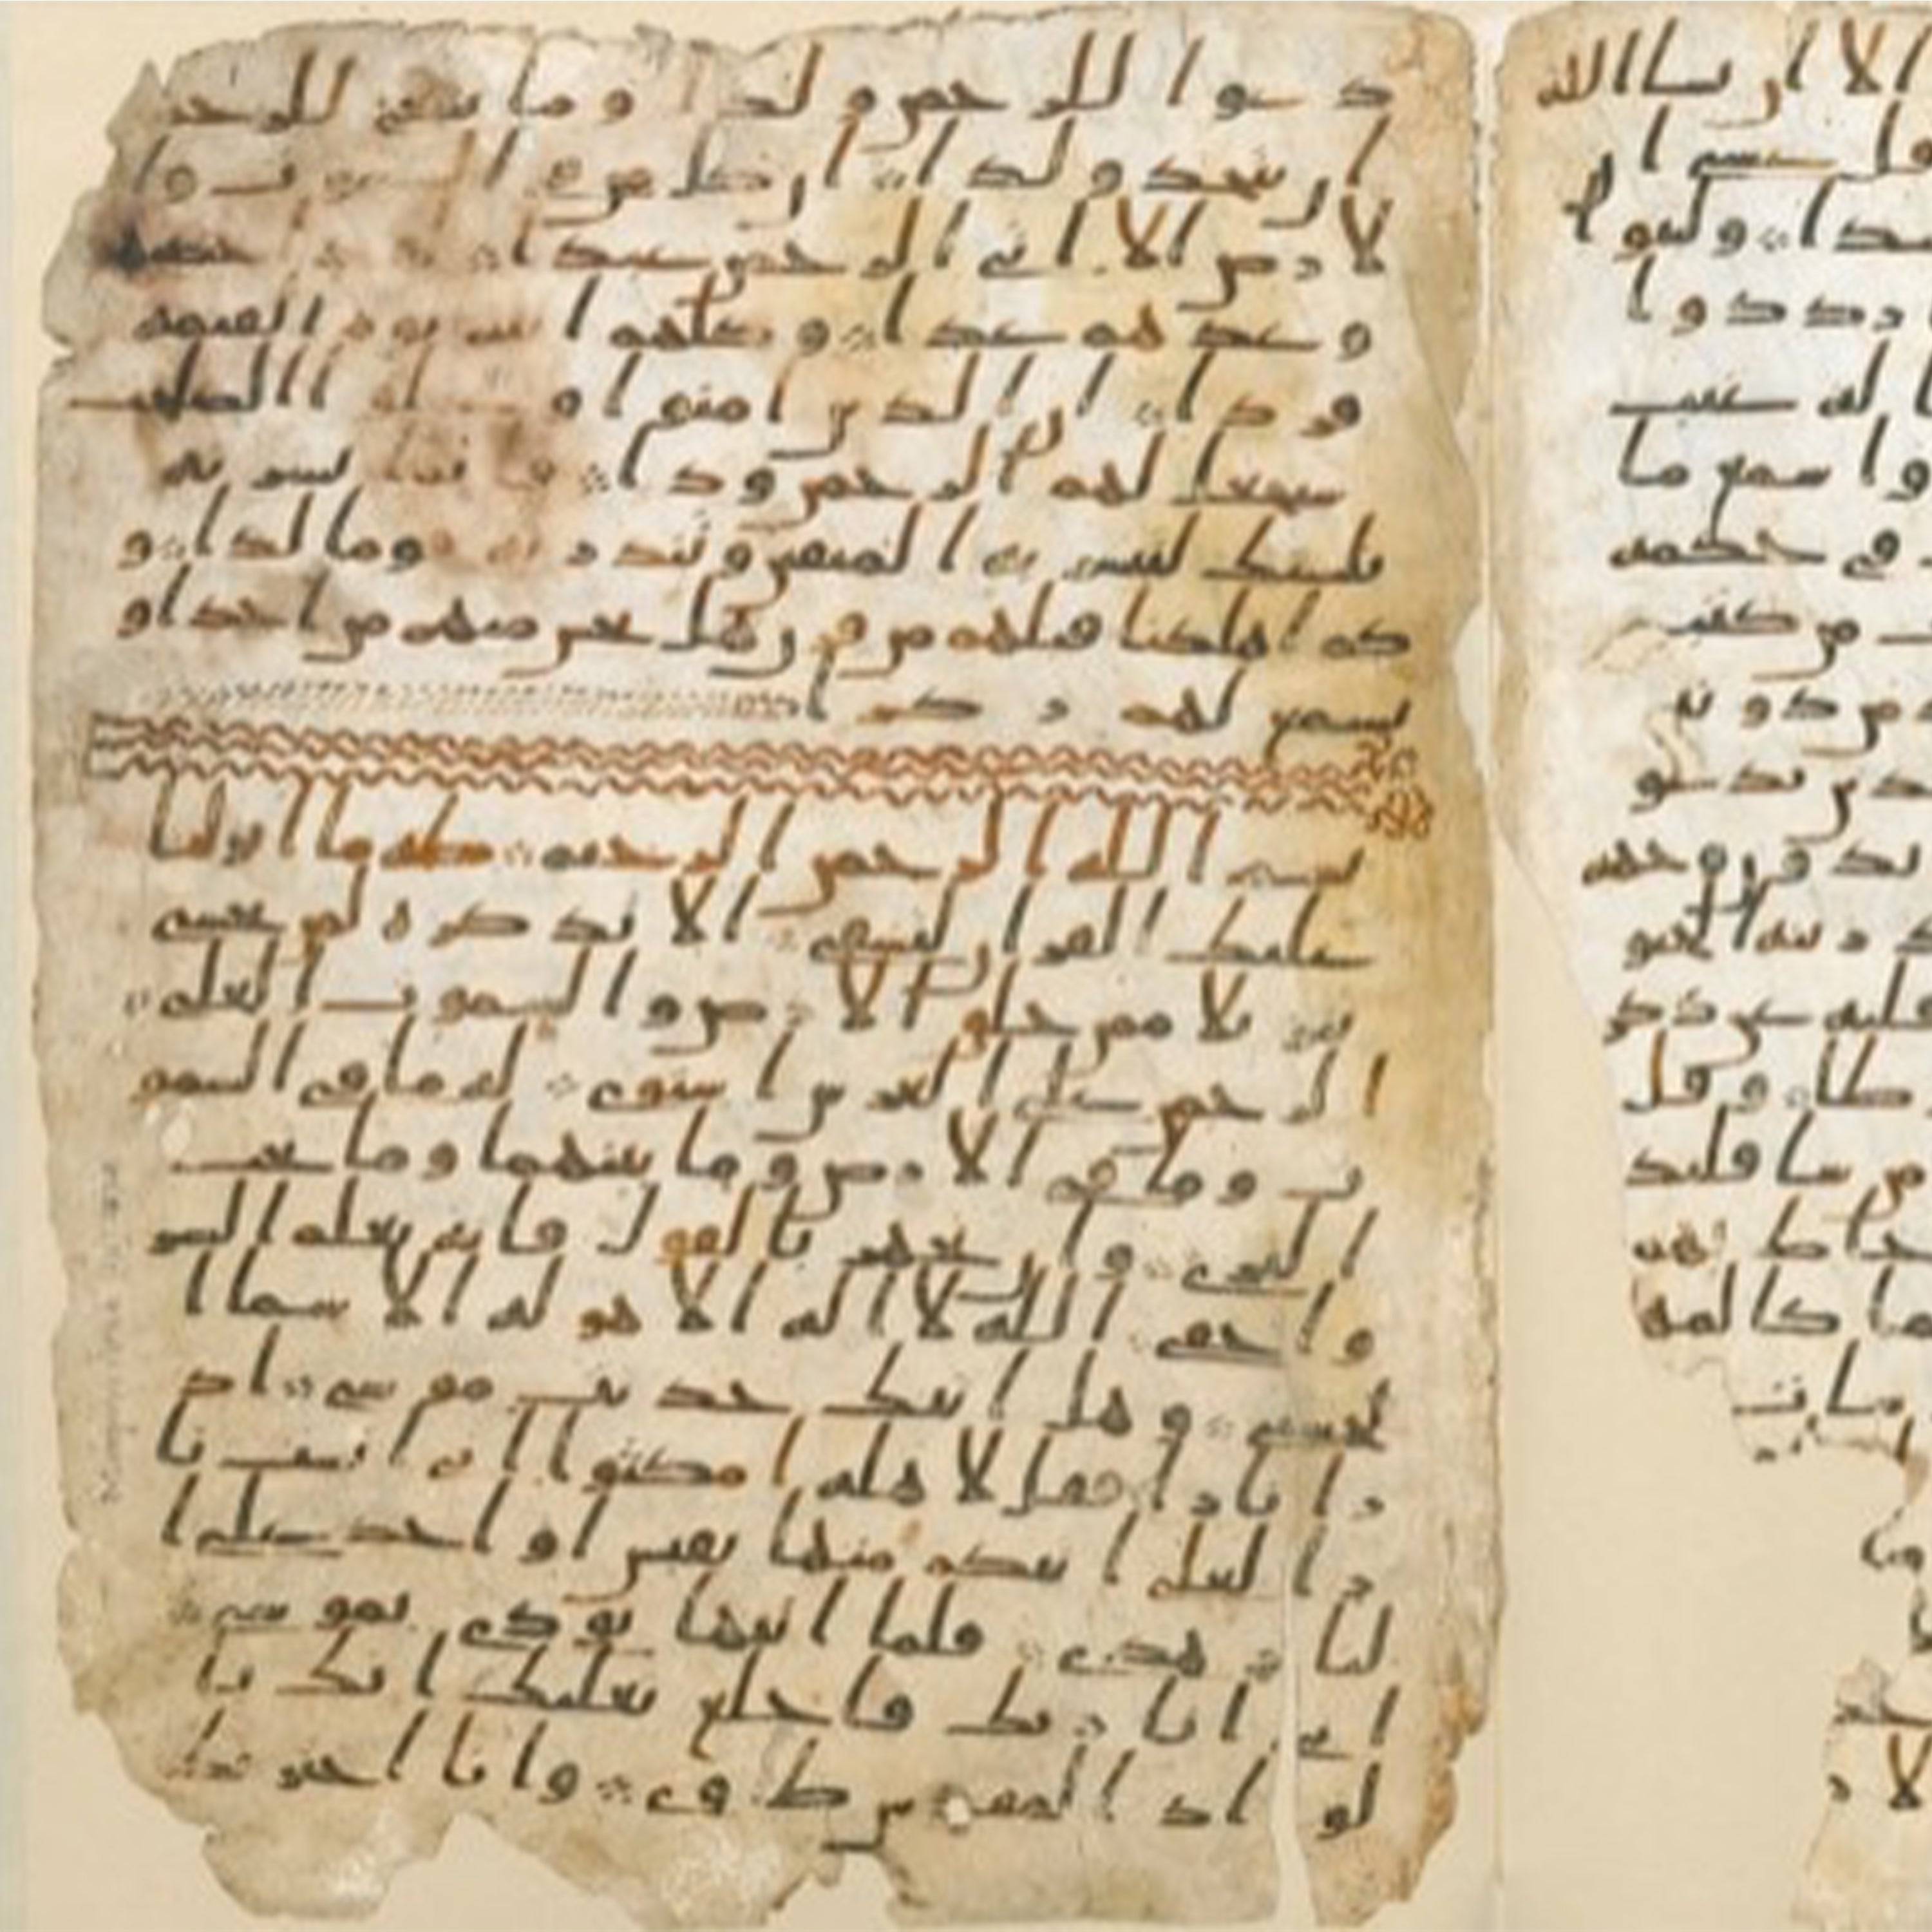 دعوا للرحمن ولدا وما ينبغي للرحمن
ان يتخذ ولدا ان كل من في السموت وا
لارض الا اتي الرحمن عبدا لقد احصيهم
وعدهم عدا وكلهم اتيه يوم القيمة
فردا ان الذين امنوا وعملوا الصلحت
سيجعل لهم الرحمن ودا فانما يسرنه
بلسنك لتبشر به المتقين وتنذر به قوما لدا و
كم اهلكنا قبلهم من قرن هل تحس منهم من احد او
تسمع لهم ركزا
بسم الله الرحمن الرحيم طه ما انزلنا
عليك القران لتشقى الا تذكرة لمن يخشى
تنزيلا ممن خلق الارض والسموت العلى
الرحمن على العرش استوى له ما في السمو
ت وما في الارض وما بينهما وما تحت
الثرى وان تجهر بالقول فانه يعلم السر
واخفى الله لا اله الا هو له الاسما ا
لحسنى وهل اتيك حديث موسى اذ
را نارا فقال لاهله امكثوا اني انست نا
را لعلي اتيكم منها بقبس او اجد على ا
لنار هدى فلما اتيها نودي يموسى
اني انا ربك فاخلع نعليك انك با
لواد المقدس طوى وانا اخترتك
الا ان يشا الله
عسى ا
شدا ولبثوا
ازددوا
له غيب
وا سمع ما
في حكمه
من كتب
من دونه
ذين يدعو
وجهه
زينة الحيو
قلبه عن ذكر
طا وقل
من شا فليك
حاط بهم
ما كالمه